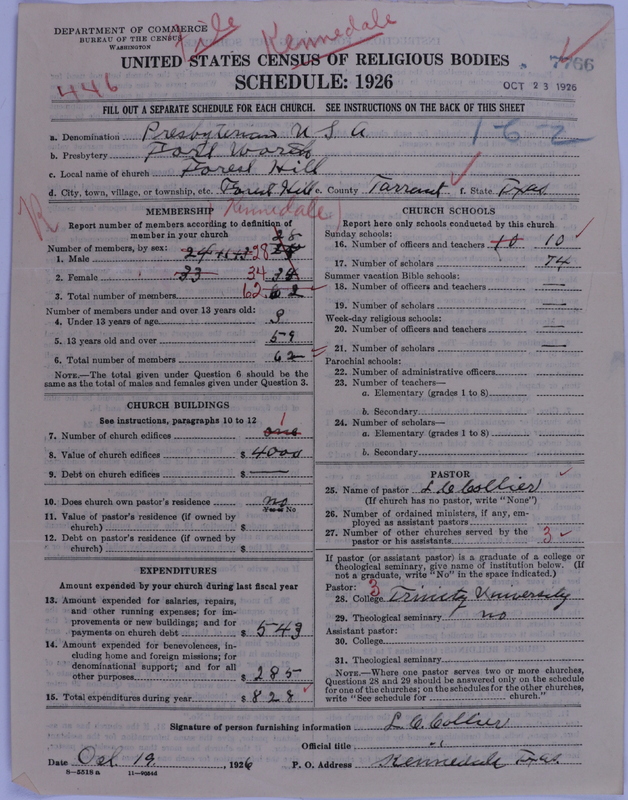 File Kennedale
DEPARTMENT OF COMMERCE
BUREAU OF THE CENSUS
WASHINGTON
UNITED STATES CENSUS OF RELIGIOUS BODIES
7766
446
SCHEDULE: 1926
OCT 23 1926
FILL OUT A SEPARATE SCHEDULE FOR EACH CHURCH. SEE INSTRUCTIONS ON THE BACK OF THIS SHEET
a. Denomination Presbyterian U S A
1-6-2
b. Presbytery Fort Worth
c. Local name of church Forest Hill
d. City, town, village, or township, etc. Forest Hill e. County Tarrant f. State Texas
(Kennedale)
MEMBERSHIP
Report number of members according to definition of member in your church
Number of members, by sex:
1. Male 28
2. Female 33 34
3. Total number of members 62 62
Number of members under and over 13 years old:
4. Under 13 years of age 9
5. 13 years old and over 59
6. Total number of members 62
NOTE.—The total given under Question 6 should be the
same as the total of males and females given under Question 3.
CHURCH BUILDINGS
See instructions, paragraphs 10 to 12
7. Number of church edifices one 1
8. Value of church edifices $ 4000
9. Debt on church edifices $ —
10. Does church own pastor's residence no
Yes or No
11. Value of pastor's residence (if owned by
church) $
12. Debt on pastor's residence (if owned by
church) $
EXPENDITURES
Amount expended by your church during last fiscal year
13. Amount expended for salaries, repairs,
and other running expenses; for im-
provements or new buildings; and for
payments on church debt $ 543
14. Amount expended for benevolences, in-
cluding home and foreign missions; for
denominational support; and for all
other purposes $ 285
15. Total expenditures during year $ 828
CHURCH SCHOOLS
Report here only schools conducted by this church
Sunday schools:
16. Number of officers and teachers 10 10
17. Number of scholars 74
Summer vacation Bible schools:
18. Number of officers and teachers —
19. Number of scholars —
Week-day religious schools:
20. Number of officers and teachers —
21. Number of scholars —
Parochial schools:
22. Number of administrative officers
23. Number of teachers—
a. Elementary (grades 1 to 8)
b. Secondary
24. Number of scholars—
a. Elementary (grades 1 to 8)
b. Secondary
PASTOR
25. Name of pastor L C Collier
(If church has no pastor, write "None")
26. Number of ordained ministers, if any, em-
ployed as assistant pastors
27. Number of other churches served by the
pastor or his assistants 3
If pastor (or assistant pastor) is a graduate of a college or
theological seminary, give name of institution below. (If
not a graduate, write "No" in the space indicated.)
Pastor: 3
28. College Trinity University
29. Theological seminary no
Assistant pastor:
30. College
31. Theological seminary
NOTE.—Where one pastor serves two or more churches,
Questions 28 and 29 should be answered only on the schedule
for one of the churches; on the schedules for the other churches,
write "See schedule for church."
Signature of person furnishing information L. C. Collier
Official title "
Date Oct 19, 1926 P. O. Address Kennedale Texas
8—5518 a 11—9054d